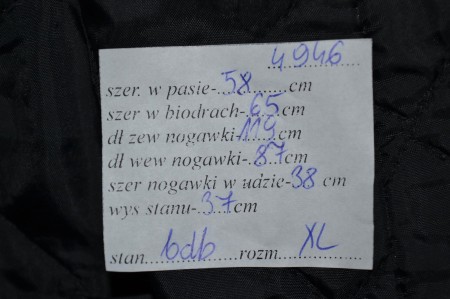 4946
szer. w pasie-58cm
szer w biodrach-65cm
dł zew nogawki-119cm
dł wew nogawki-87cm
szer nogawki w udzie-38 cm
wys stanu-37cm
stan bdb rozm XL